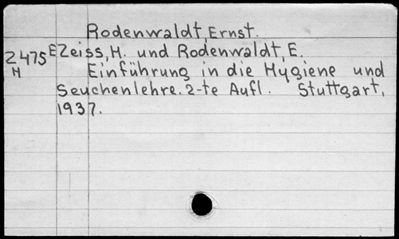 Rodenwaldt, Ernst.
2475 E Zeiss, H. und Rodenwaldt, E.
M Einführung in die Hygiene und
Seuchenlehre. 2-te Aufl. Stuttgart,
1937.